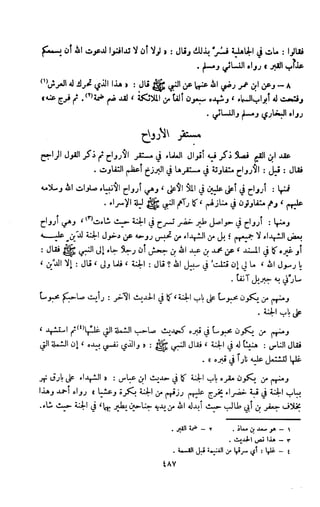 فقالوا : مات في الجاهلية فسُرَّ بذلك وقال : « لولا أن لا تدافنوا لدعوت الله أن يسمعكم
عذاب القبر » رواه النسائي ومسلم .
٨ – وعن ابن عمر رضي الله عنهما عن النبي ﷺ قال : « هذا الذي تحرك له العرش(١)
وفتحت له أبواب السماء ، وشهده سبعون ألفاً من الملائكة ، لقد ضم ضمة(٢) . ثم فرج عنه »
رواه البخاري ومسلم والنسائي .
مستقر الأرواح
عقد ابن القيم فصلاً ذكر فيه أقوال العلماء في مستقر الأرواح ثم ذكر القول الراجح
فقال : قيل : الأرواح متفاوتة في مستقرها في البرزخ أعظم التفاوت .
فمنها : أرواح في أعلى عليين في الملأ الأعلى ، وهي أرواح الأنبياء صلوات الله وسلامه
عليهم ، وهم متفاوتون في منازلهم ، كما رآهم النبي ﷺ ليلة الإسراء .
ومنها : أرواح في حواصل طير خضر تسرح في الجنة حيث شاءت(٣) ، وهي أرواح
بعض الشهداء لا جميعهم ؛ بل من الشهداء من تحبس روحه عن دخول الجنة لدَين عليـه
أو غيره كما في المسند « عن محمد بن عبد الله بن جحش أن رجلا جاء إلى النبي ﷺ فقال :
يا رسول الله ، ما لي إن قتلت في سبيل الله ؟ قال : الجنة ، فلما ولى ، قال : إلا الدَّين ،
سارّني به جبريل آنفاً .
ومنهم من يكون محبوساً على باب الجنة ، كما في الحديث الآخر : رأيت صاحبكم محبوساً
على باب الجنة .
ومنهم من يكون محبوساً في قبره كحديث صاحب الشملة التي غلها(٤) ثم استشهد ،
فقال الناس : هنيئاً له في الجنة ، فقال النبي ﷺ : « والذي نفسي بيده ، إن الشملة التي
غلها لتشتعل عليه ناراً في قبره » .
ومنهم من يكون مقره باب الجنة كما في حديث ابن عباس : « الشهداء على بارق نهر
بباب الجنة في قبة خضراء يخرج عليهم رزقهم من الجنة بكرة وعشيا » رواه أحمد وهذا
بخلاف جعفر بن أبي طالب حيث أبدله الله من يديه جناحين يطير بهما ، في الجنة حيث شاء .
١ – هو سعد بن معاذ . ٢ – ضمة القبر .
٣ – هذا نص الحديث .
٤ – غلها : أي سرقها من الغنيمة قبل القسمة .
٤٨٧